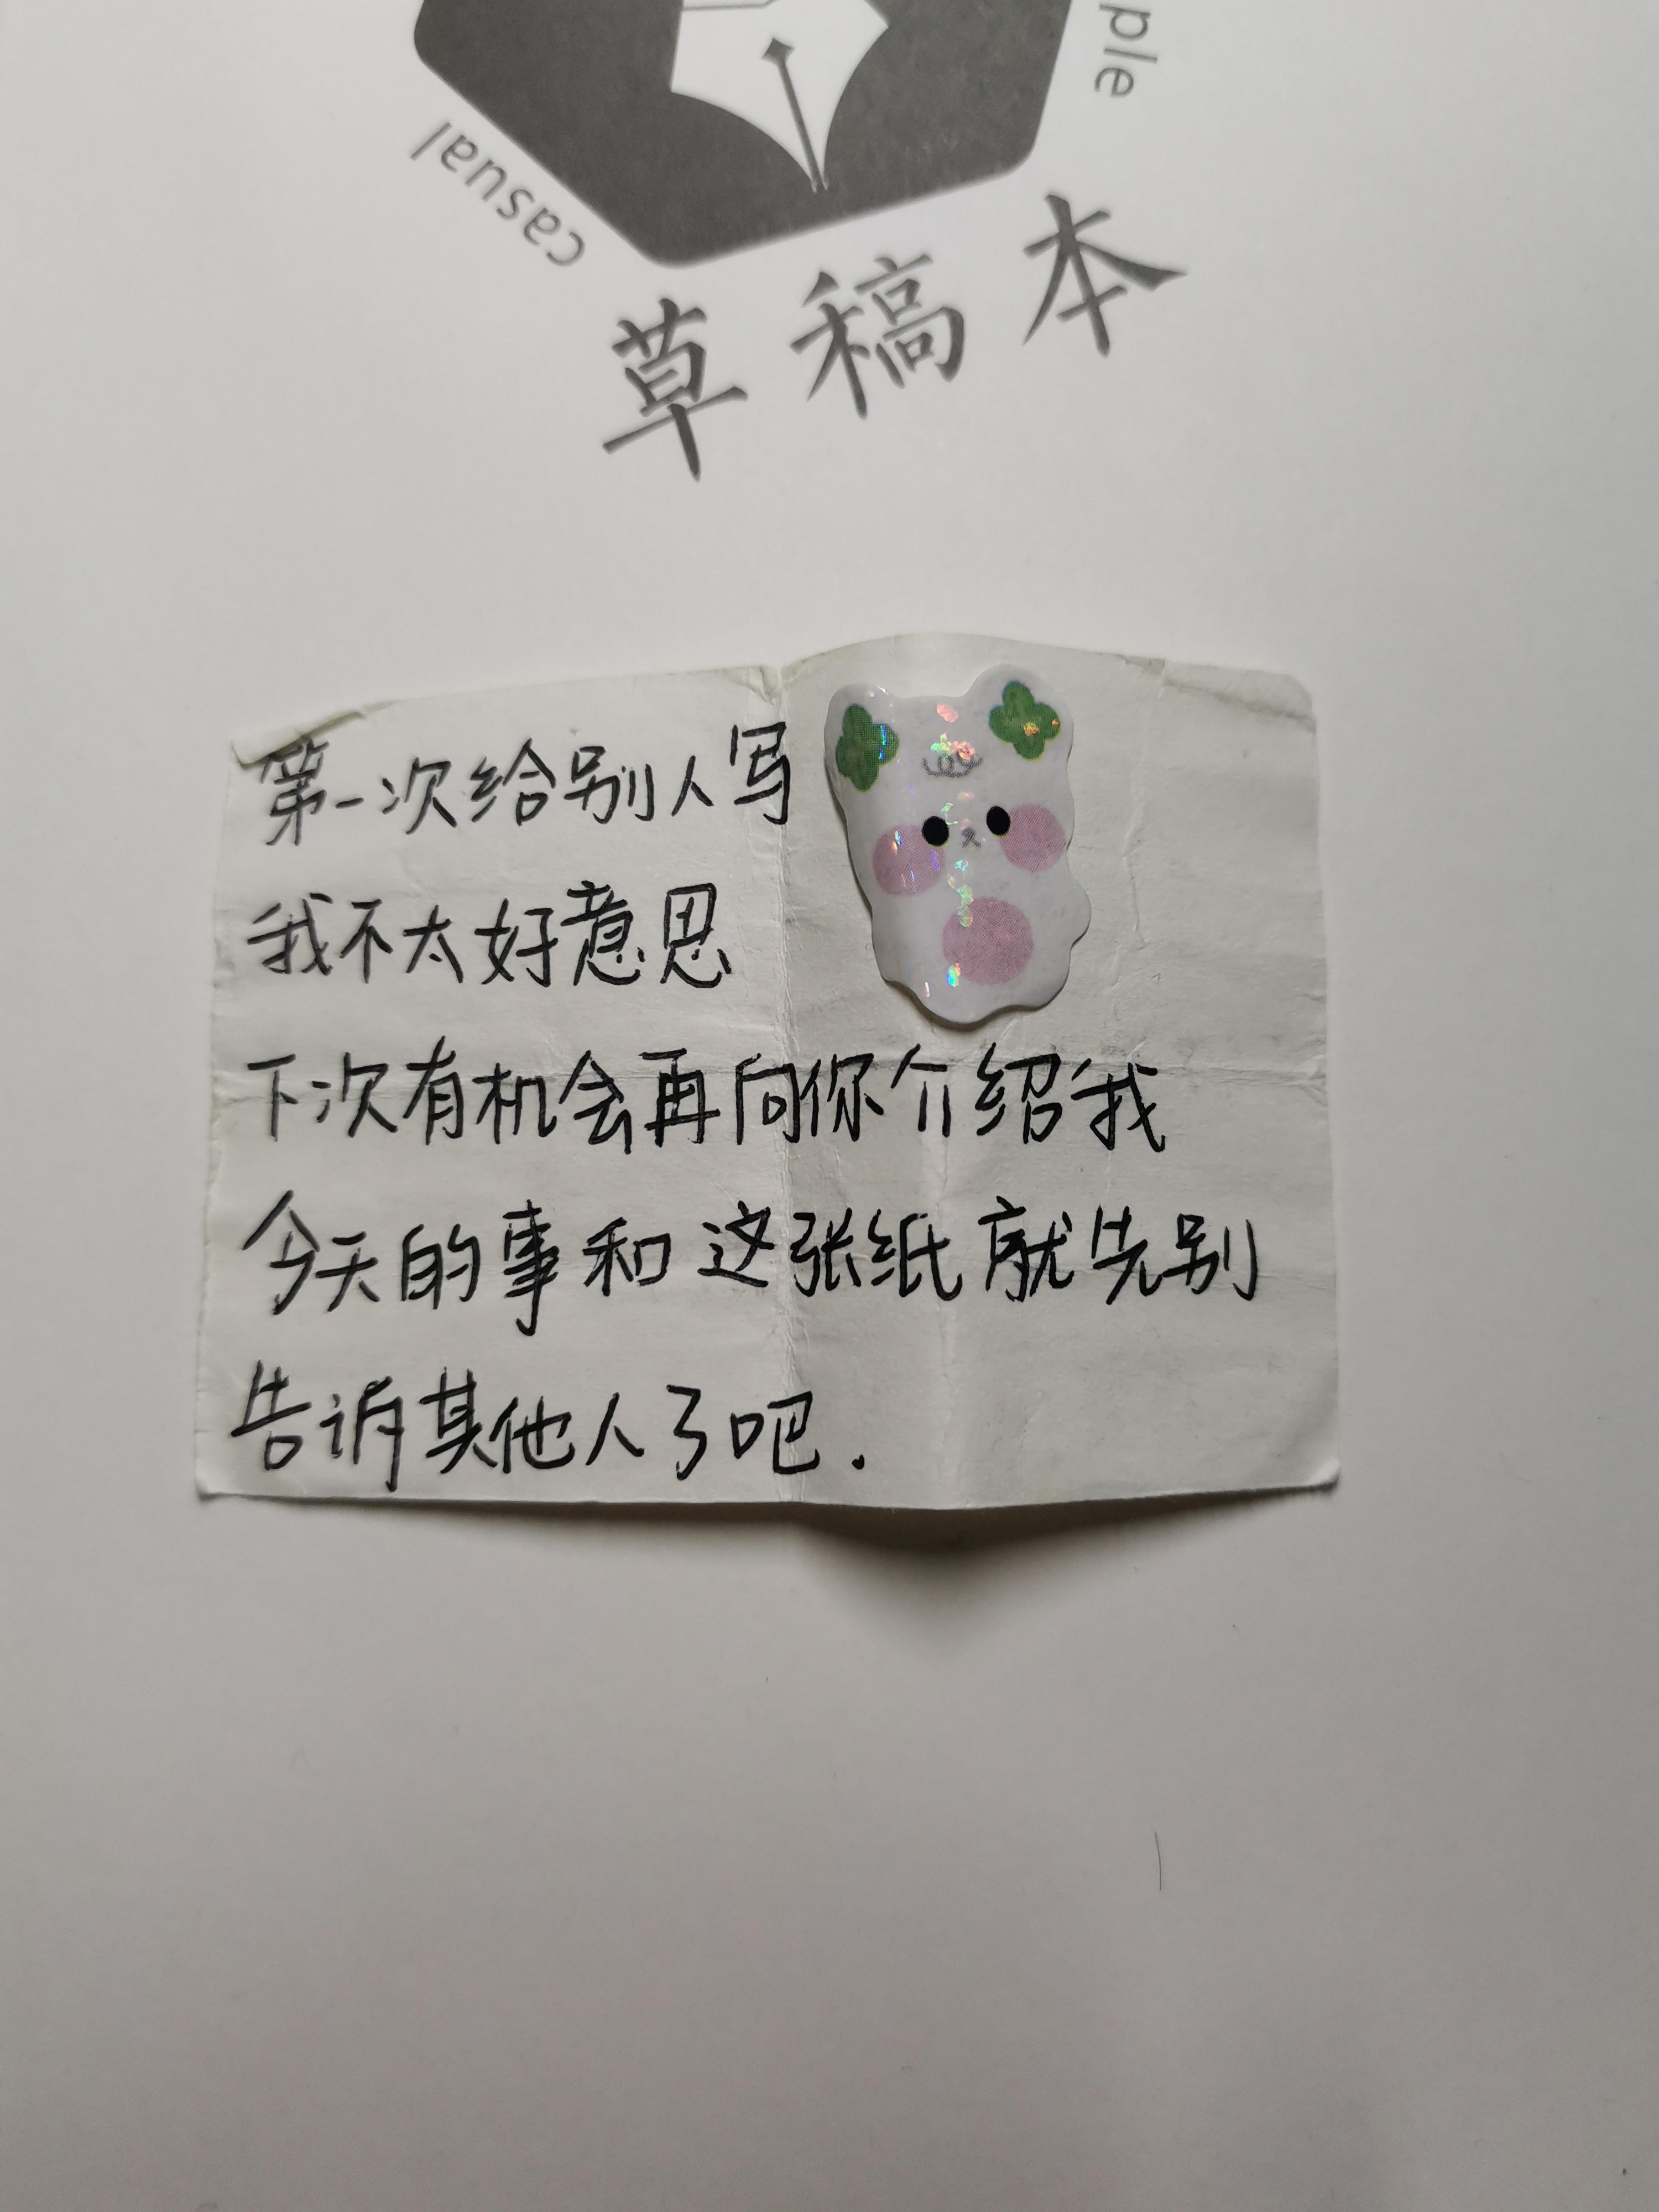 ple
casual
草稿本
第一次给别人写
我不太好意思
下次有机会再向你介绍我
今天的事和这张纸就先别
告诉其他人了吧.